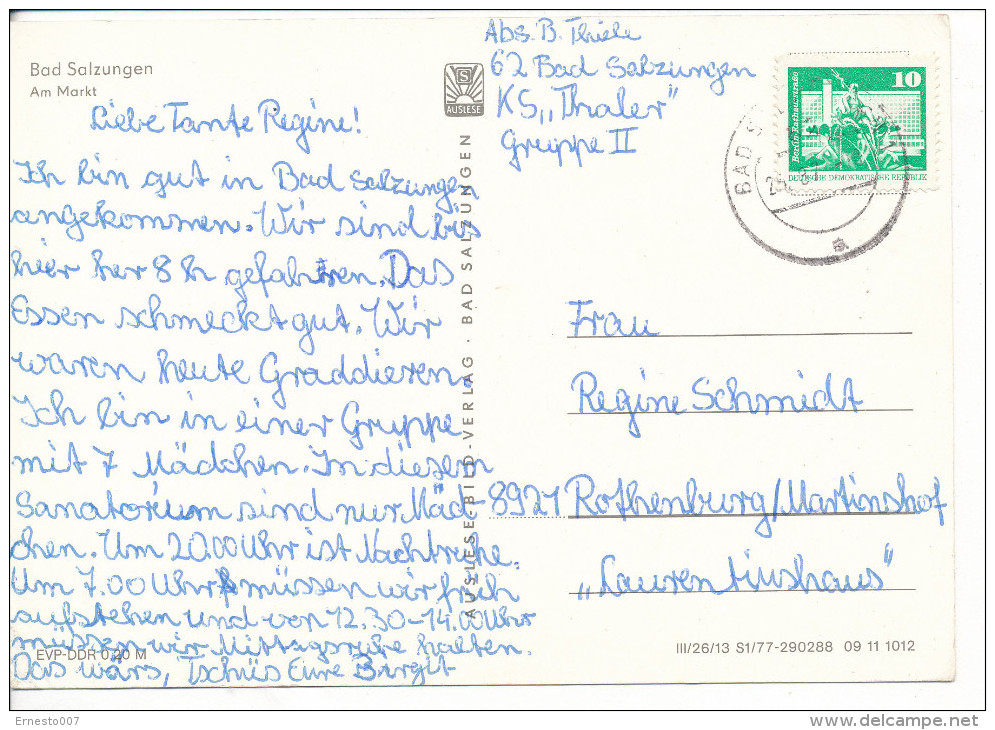 Bad Salzungen
Am Markt
Liebe Tante Regine!
Ich bin gut in Bad Salzungen
angekommen. Wir sind bis
hier her 8 h gefahren. Das
Essen schmeckt gut. Wir
waren heute Graddieren.
Ich bin in einer Gruppe
mit 7 Mädchen. In diesem
Sanatorium sind nur Mäd-
chen. Um 20.00 Uhr ist Nachtruhe.
Um 7.00 Uhr müssen wir früh
aufstehen und von 12.30-14.00 Uhr
müssen wir Mittagsruhe halten.
Das wärs, Tschüs Eure Birgit
EVP-DDR 0,20 M
S
AUSLESE
AUSLESE-BILD-VERLAG · BAD SALZUNGEN
Abs. B. Thiele
62 Bad Salzungen
KS „Thaler"
Gruppe II
10
Berlin, Rathausstraße
DEUTSCHE DEMOKRATISCHE REPUBLIK
BAD S
a
Frau
Regine Schmidt
8921 Rothenburg/Martinshof
„Laurentiushaus"
III/26/13 S1/77-290288 09 11 1012
Ernesto007
delcampe.net